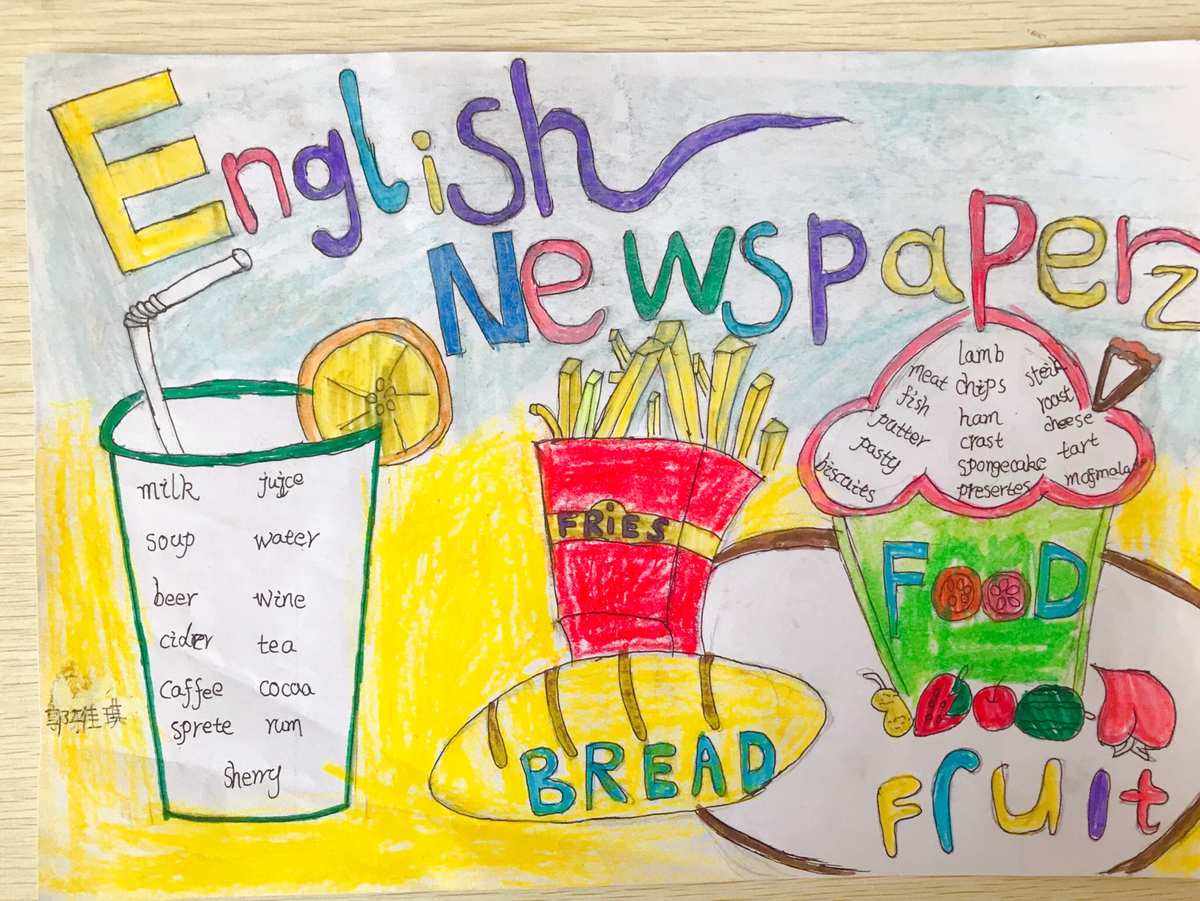 English
Newspaper
milk juice
soup water
beer wine
cider tea
caffee cocoa
sprete rum
sherry
FRiES
BREAD
lamb
meat chips
fish ham roast
putter crast cheese
pasty spongecake tart
biscuits presertes
FOOD
Fruit